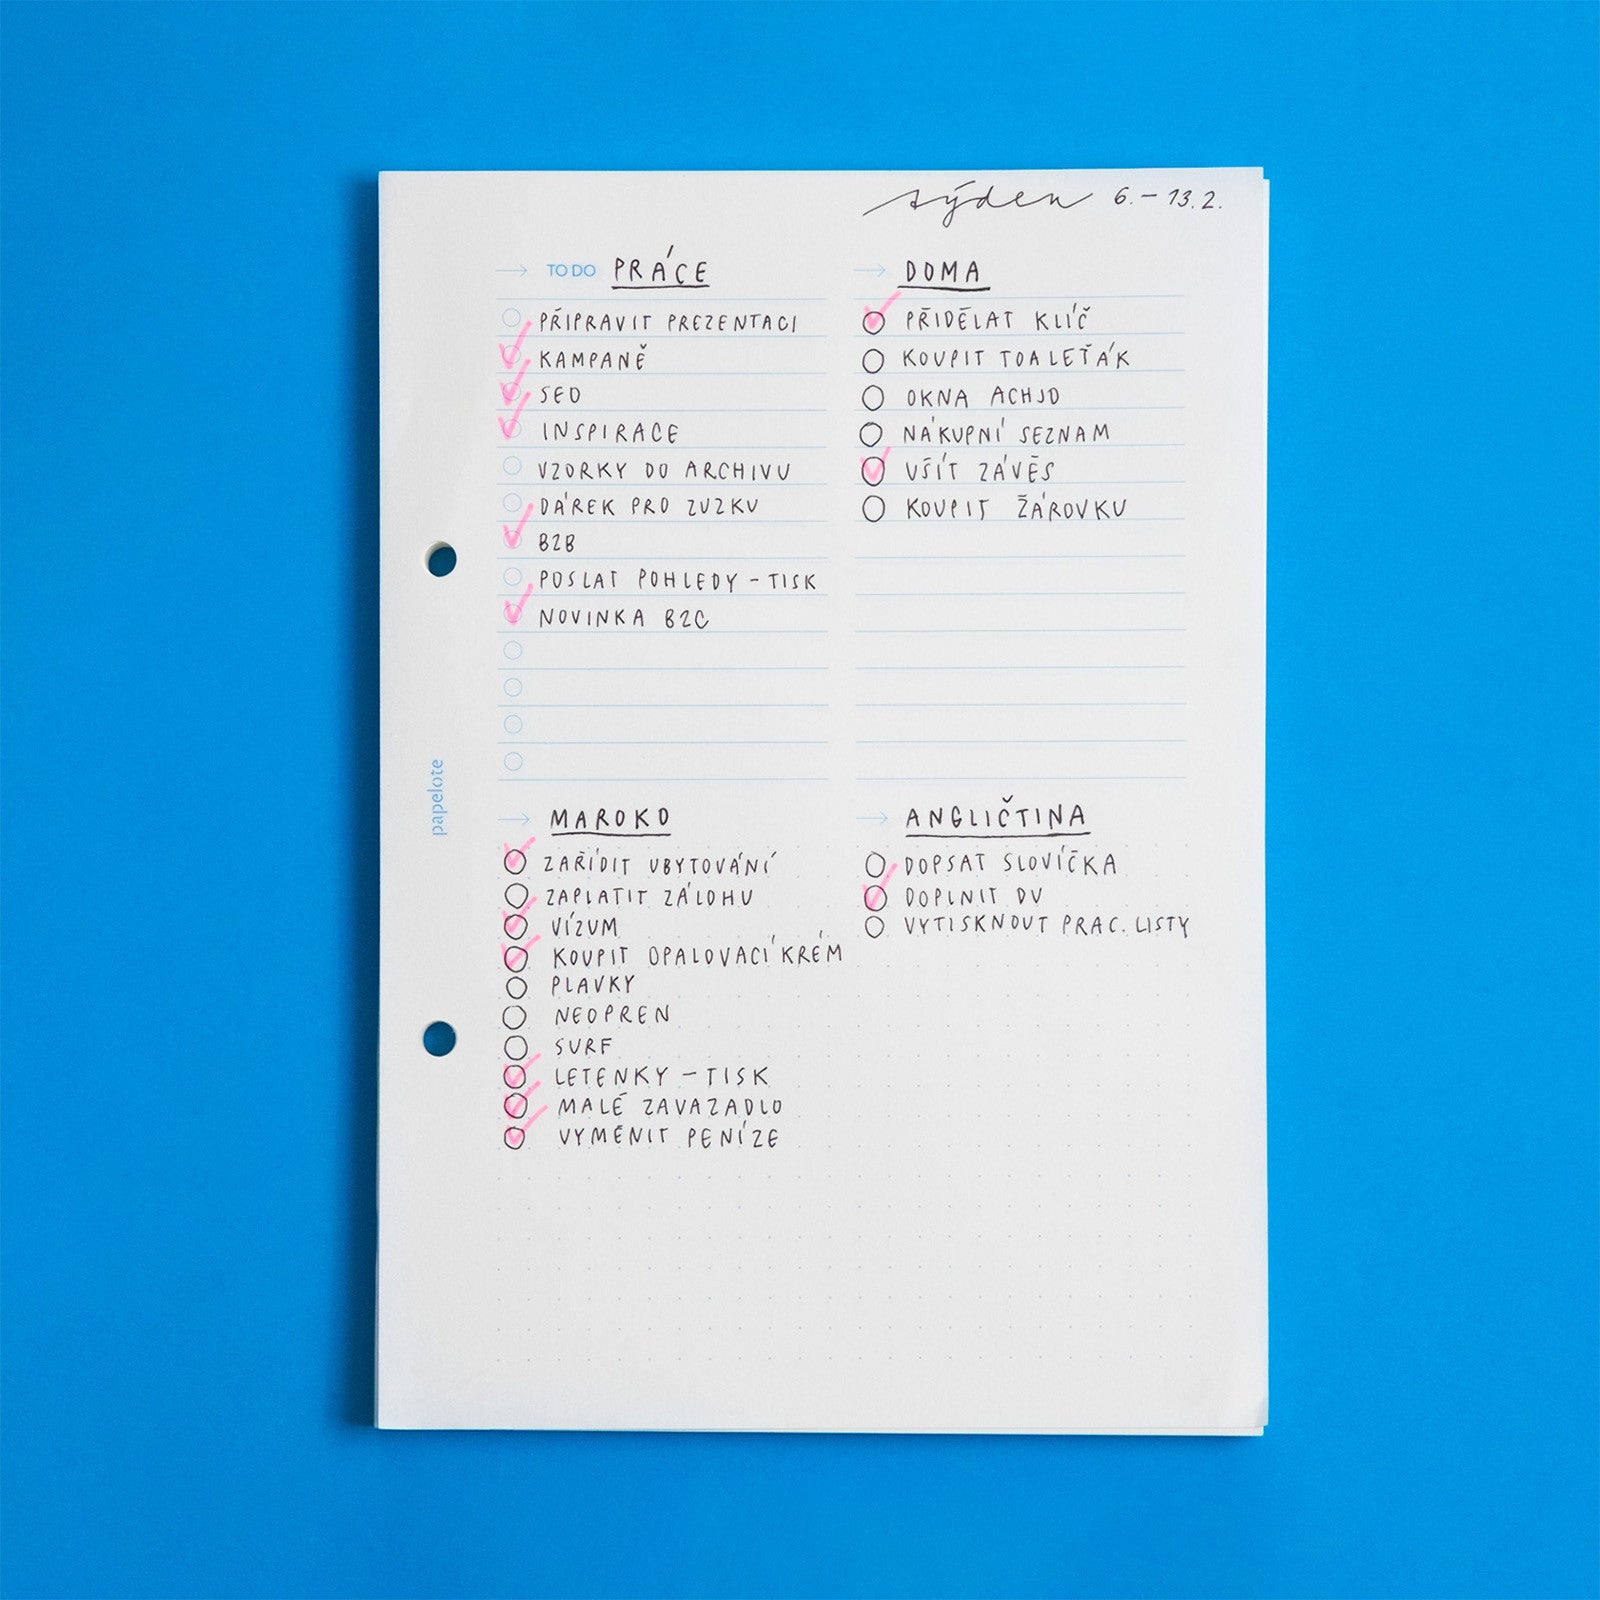 týden 6. – 13. 2.
TO DO PRÁCE
PŘIPRAVIT PREZENTACI
KAMPANĚ
SEO
INSPIRACE
VZORKY DO ARCHIVU
DÁREK PRO ZUZKU
B2B
POSLAT POHLEDY – TISK
NOVINKA B2C
DOMA
PŘIDĚLAT KLÍČ
KOUPIT TOALEŤÁK
OKNA ACHJO
NÁKUPNÍ SEZNAM
VŠÍT ZÁVĚS
KOUPIT ŽÁROVKU
papelote
MAROKO
ZAŘÍDIT UBYTOVÁNÍ
ZAPLATIT ZÁLOHU
VÍZUM
KOUPIT OPALOVACÍ KRÉM
PLAVKY
NEOPREN
SURF
LETENKY – TISK
MALÉ ZAVAZADLO
VYMĚNIT PENÍZE
ANGLIČTINA
DOPSAT SLOVÍČKA
DOPLNIT DÚ
VYTISKNOUT PRAC. LISTY